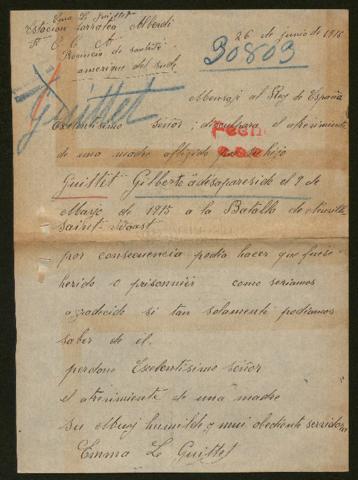 Ema Le Guittet
Estacion Larralea Alberdi
F. C. C. A
Provincia de santa fé
amerique del sude
26 de junio de 1916
30803
Guittet
Mensaji al Rey de España
Exelentisimo señor; disculpara el atrevimiento
de una madre afligida por su hijo
Guittet Gilberto a desaparesido el 9 de
Mayo de 1915 a la Batalla de Neuville
Saint-Vaast
por consecuencia podia hacer que fuese
herido o prisonnier como seriamos
agradecido si tan solamenti podiamos
saber de il.
perdone Exelentisimo señor
el atrevimiento de una madre
Su Muy humilde y mui obediente servidora
Emma Le Guittet